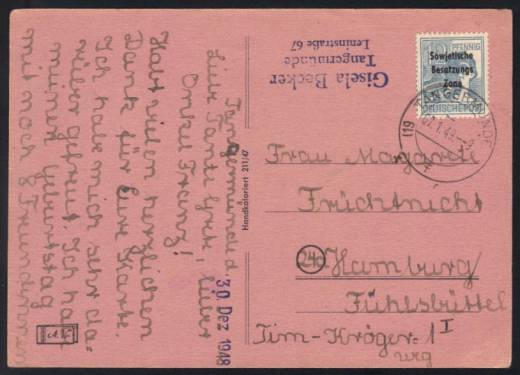 Tangermünde d.
30. Dez 1948
Liebe Tante Gret, lieber
Onkel Franz!
Habt vielen herzlichen
Dank für Eure Karte.
Ich habe mich sehr da-
rüber gefreut. Ich hab
meinen Geburtstag
mit noch 8 Freundinnen
Handkoloriert 211/47
Gisela Becker
Tangermünde
Leninstraße 67
PFENNIG
Sowjetische
Besatzungs
Zone
DEUTSCHE POST
(19) TANGERMÜNDE
Frau Margarete
Früchtnicht
24a Hamburg
Fühlsbüttel
Tim-Kröger-
weg
1 I